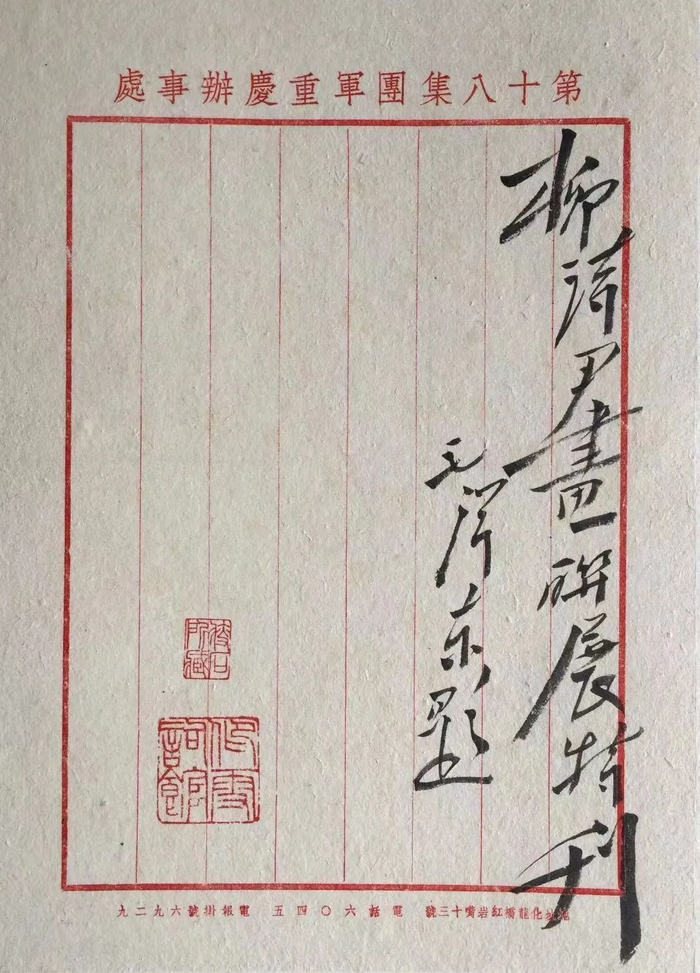 第十八集團軍重慶辦事處
柳詩尹畫聯展特刊
毛澤東題
地址化龍橋紅岩嘴十三號 電話六〇四五 電報掛號六九二九